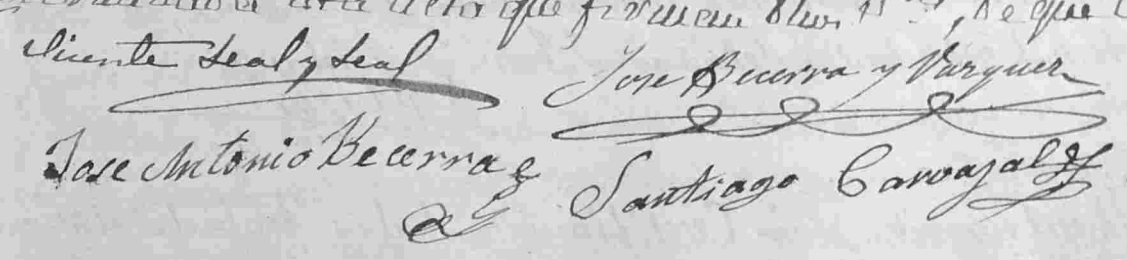 acto que firman
Vicente Leal y Leal
Jose Becerra y Vazquez
Jose Antonio Becerra
Santiago Carvajal